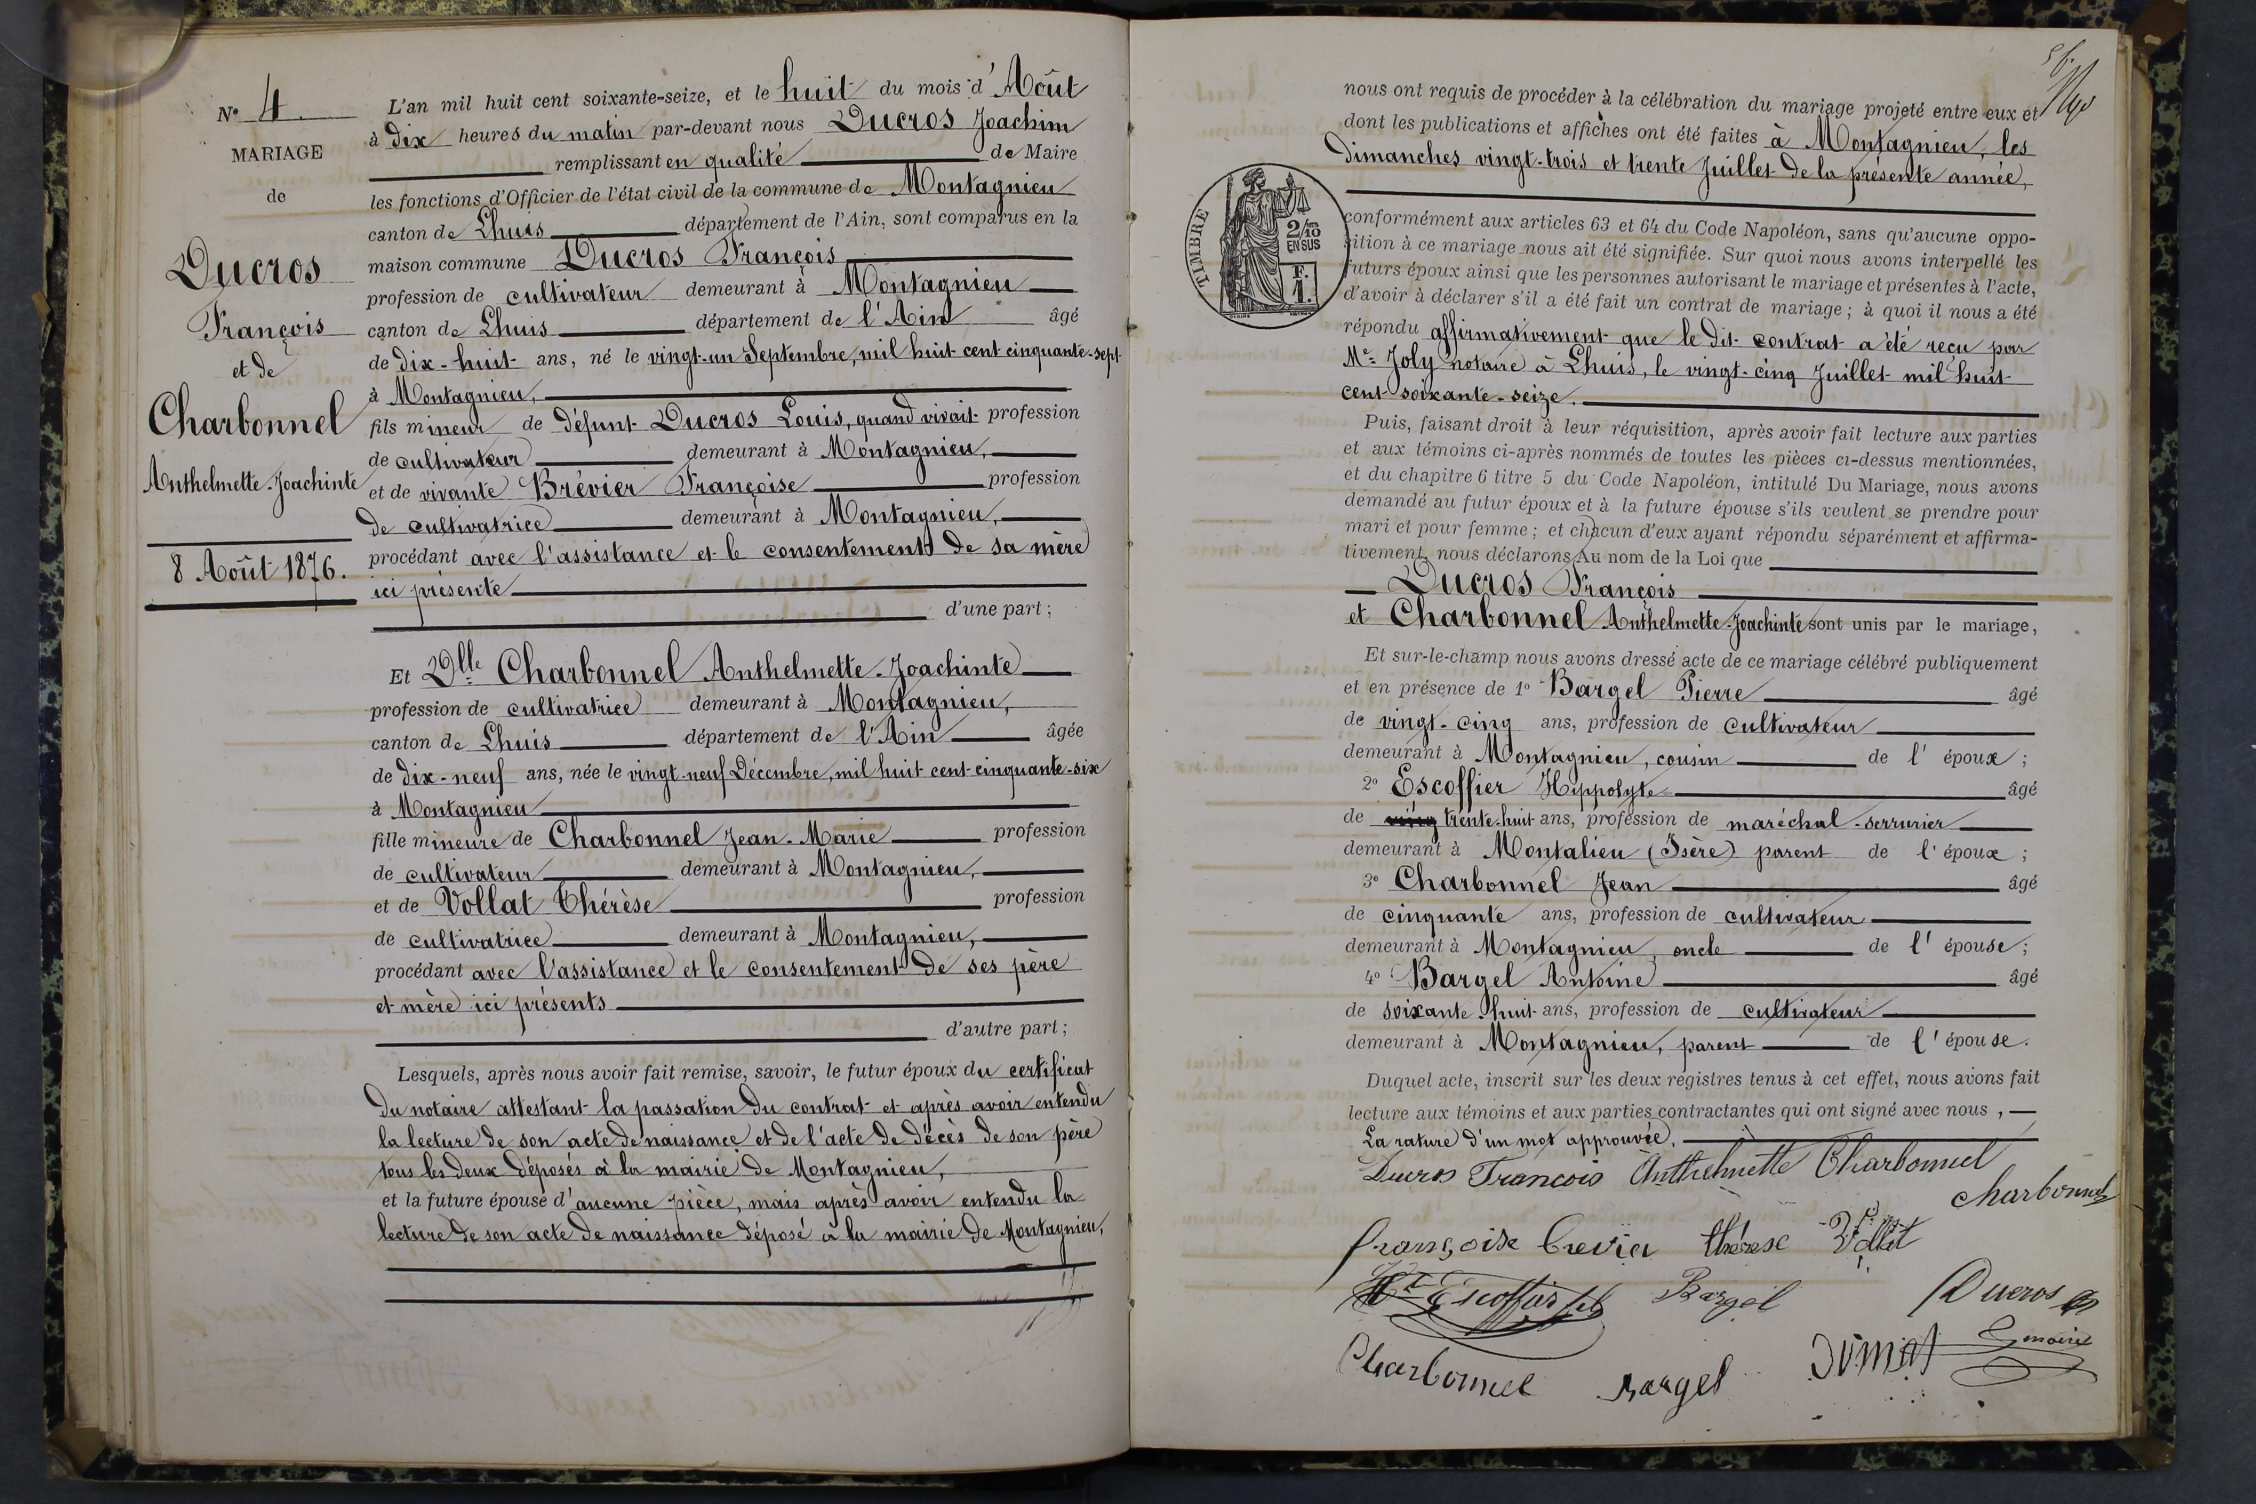 N° 4.
MARIAGE
de
Ducros
François
et de
Charbonnel
Anthelmette-Joachinte
8 Août 1876.
L'an mil huit cent soixante-seize, et le huit du mois d'Août
à dix heures du matin par-devant nous Ducros Joachim
remplissant en qualité de Maire
les fonctions d'Officier de l'état civil de la commune de Montagnieu
canton de Lhuis département de l'Ain, sont comparus en la
maison commune Ducros François
profession de cultivateur demeurant à Montagnieu
canton de Lhuis département de l'Ain âgé
de dix-huit ans, né le vingt-un Septembre, mil huit cent cinquante-sept
à Montagnieu,
fils mineur de défunt Ducros Louis, quand vivait profession
de cultivateur demeurant à Montagnieu,
et de vivante Brévier Françoise profession
de cultivatrice demeurant à Montagnieu,
procédant avec l'assistance et le consentement de sa mère
ici présente
d'une part ;
Et Dlle Charbonnel Anthelmette-Joachinte
profession de cultivatrice demeurant à Montagnieu,
canton de Lhuis département de l'Ain âgée
de dix-neuf ans, née le vingt-neuf Décembre, mil huit cent cinquante-six
à Montagnieu
fille mineure de Charbonnel Jean-Marie profession
de cultivateur demeurant à Montagnieu,
et de Vollat Thérèse profession
de cultivatrice demeurant à Montagnieu,
procédant avec l'assistance et le consentement de ses père
et mère ici présents
d'autre part ;
Lesquels, après nous avoir fait remise, savoir, le futur époux du certificat
du notaire attestant la passation du contrat et après avoir entendu
la lecture de son acte de naissance et de l'acte de décès de son père
tous les deux déposés à la mairie de Montagnieu,
et la future épouse d'aucune pièce, mais après avoir entendu la
lecture de son acte de naissance déposé à la mairie de Montagnieu,
nous ont requis de procéder à la célébration du mariage projeté entre eux et
dont les publications et affiches ont été faites à Montagnieu, les
dimanches vingt-trois et trente Juillet de la présente année,
TIMBRE
2/10
EN SUS
F.
1.
conformément aux articles 63 et 64 du Code Napoléon, sans qu'aucune oppo-
sition à ce mariage nous ait été signifiée. Sur quoi nous avons interpellé les
futurs époux ainsi que les personnes autorisant le mariage et présentes à l'acte,
d'avoir à déclarer s'il a été fait un contrat de mariage ; à quoi il nous a été
répondu affirmativement que le dit contrat a été reçu par
Me Joly notaire à Lhuis, le vingt-cinq Juillet mil huit
cent soixante-seize.
Puis, faisant droit à leur réquisition, après avoir fait lecture aux parties
et aux témoins ci-après nommés de toutes les pièces ci-dessus mentionnées,
et du chapitre 6 titre 5 du Code Napoléon, intitulé Du Mariage, nous avons
demandé au futur époux et à la future épouse s'ils veulent se prendre pour
mari et pour femme ; et chacun d'eux ayant répondu séparément et affirma-
tivement, nous déclarons Au nom de la Loi que
Ducros François
et Charbonnel Anthelmette-Joachinte sont unis par le mariage,
Et sur-le-champ nous avons dressé acte de ce mariage célébré publiquement
et en présence de 1° Bargel Pierre âgé
de vingt-cinq ans, profession de cultivateur
demeurant à Montagnieu, cousin de l'époux ;
2° Escoffier Hippolyte âgé
de vingt trente-huit ans, profession de maréchal-serrurier
demeurant à Montalieu (Isère) parent de l'époux ;
3° Charbonnel Jean âgé
de cinquante ans, profession de cultivateur
demeurant à Montagnieu, oncle de l'épouse ;
4° Bargel Antoine âgé
de soixante-huit ans, profession de cultivateur
demeurant à Montagnieu, parent de l'épouse.
Duquel acte, inscrit sur les deux registres tenus à cet effet, nous avons fait
lecture aux témoins et aux parties contractantes qui ont signé avec nous,
La rature d'un mot approuvée.
Ducros François Anthelmette Charbonnel
Charbonnel
françoise brevier thérèse Vollat
Escoffier Bargel Ducros
Charbonnel Bargel